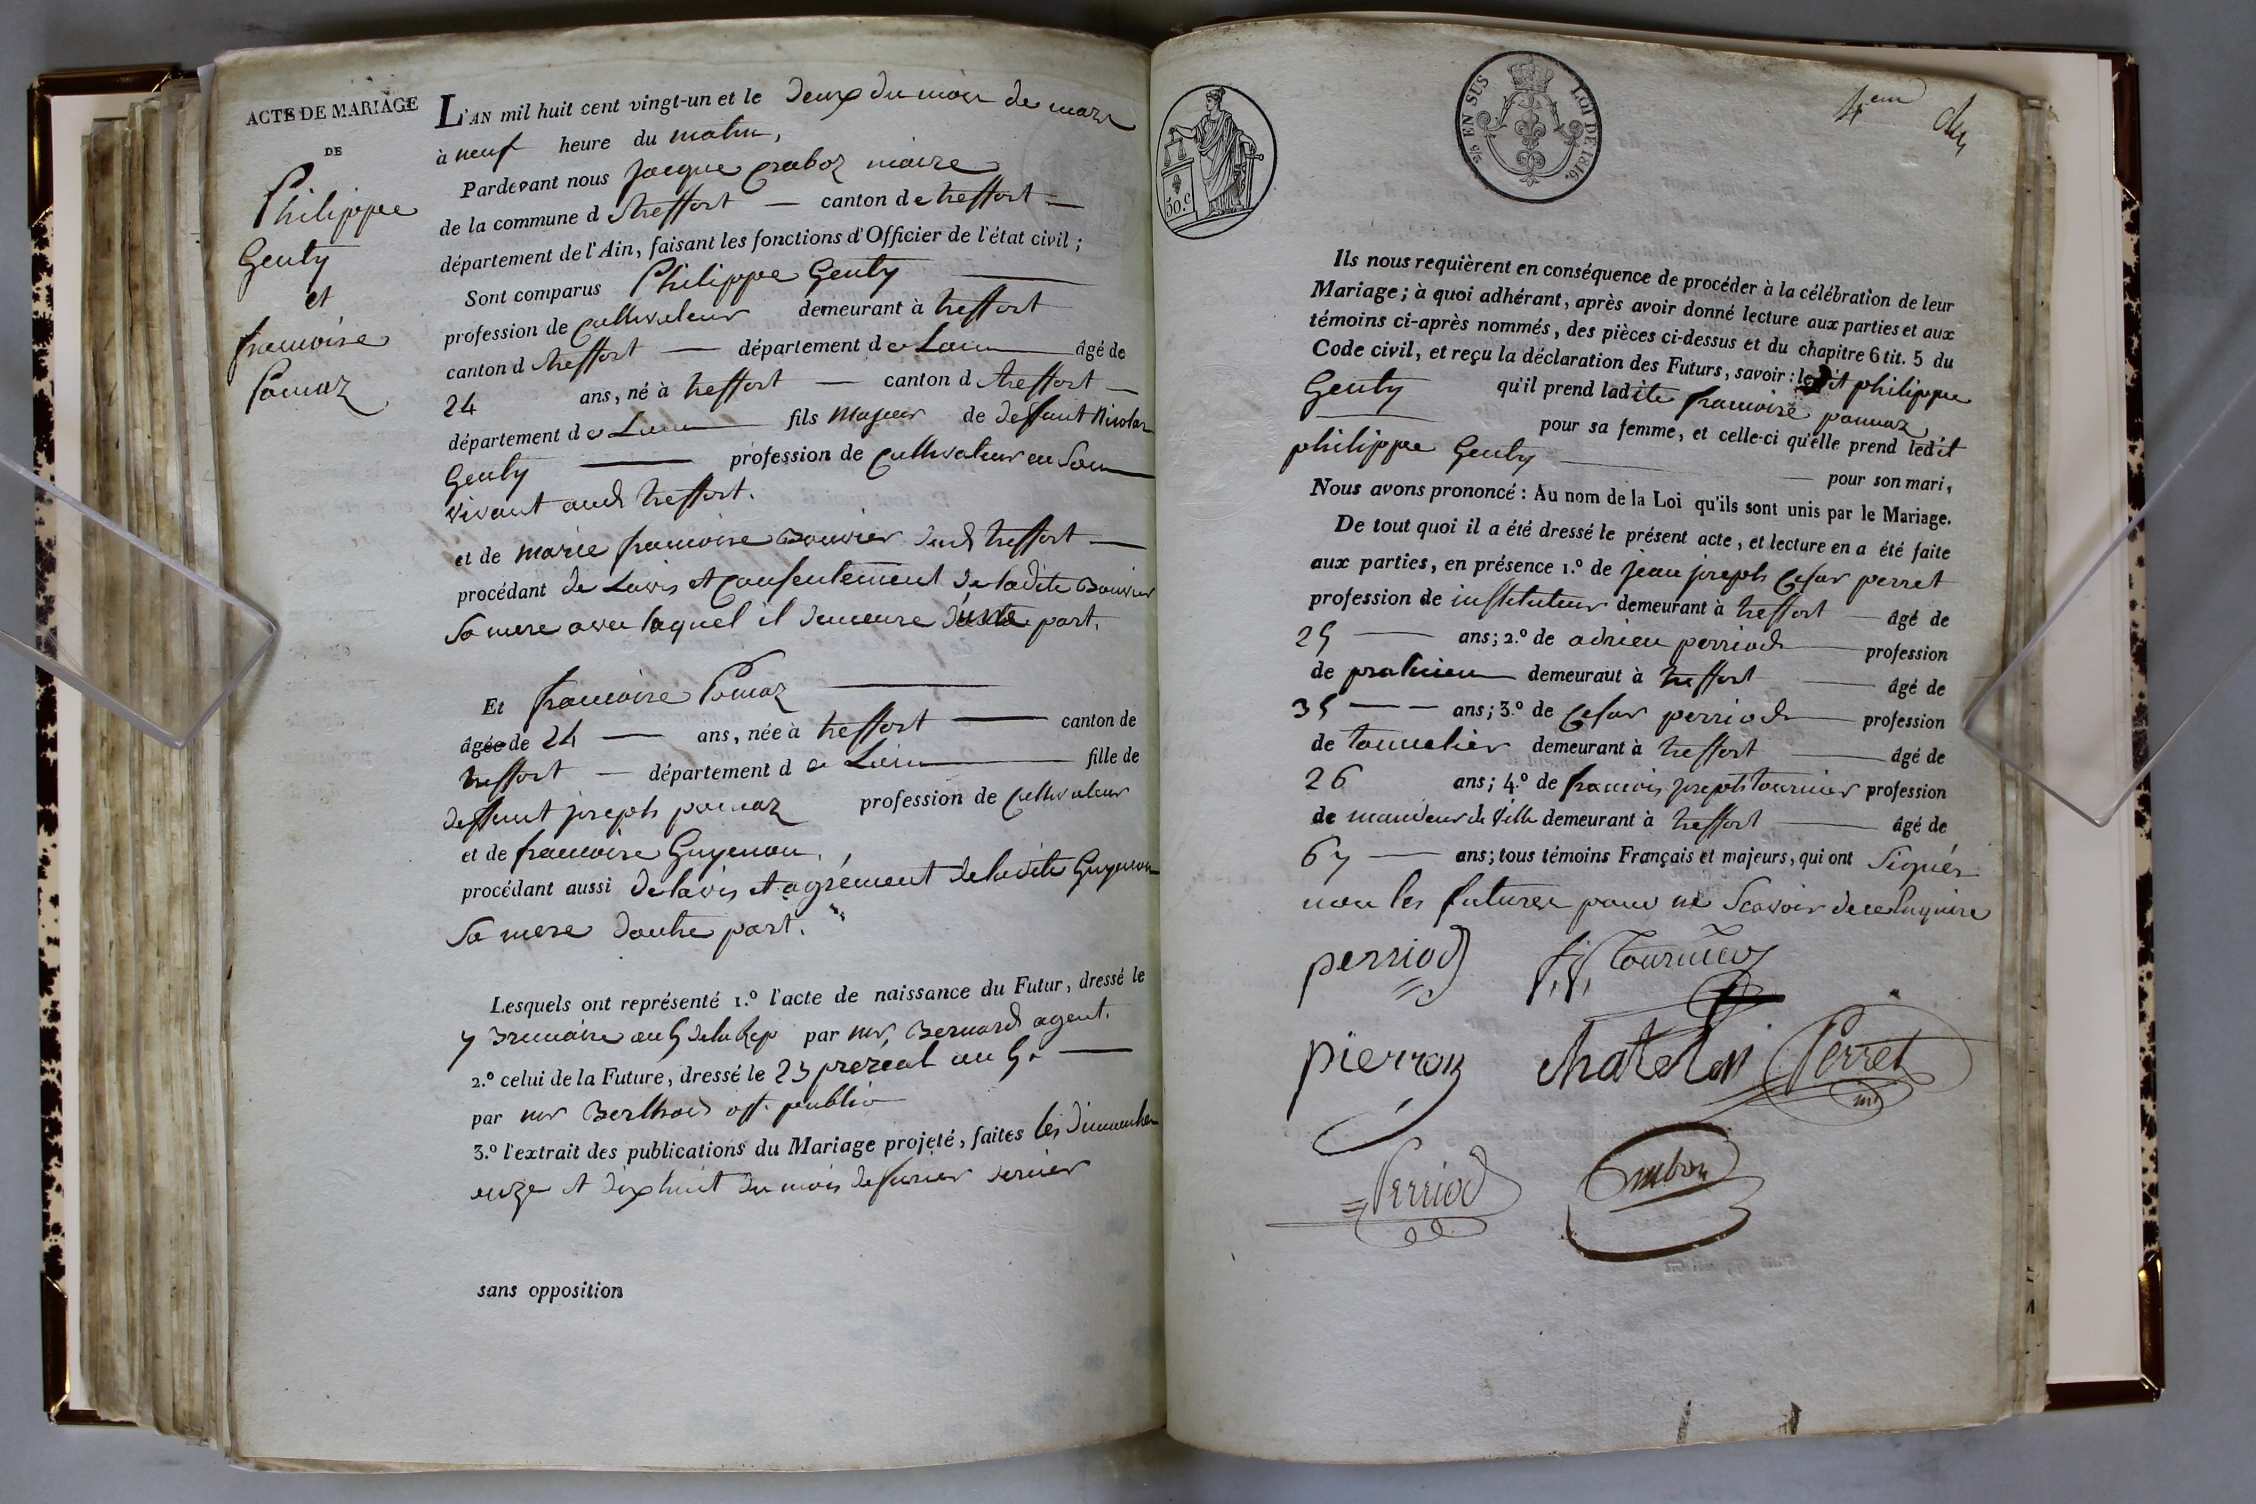 ACTE DE MARIAGE
DE
Philippe
Genty
et
francoise
Ponnaz
L'AN mil huit cent vingt-un et le deux du mois de mars
à neuf heure du matin,
Pardevant nous Jacque maire
de la commune de treffort — canton de treffort —
département de l'Ain, faisant les fonctions d'Officier de l'état civil ;
Sont comparus Philippe Genty
profession de Cultivateur demeurant à treffort
canton de treffort — département de Lain âgé de
24 ans, né à treffort — canton de treffort —
département de Lain fils Majeur de deffunt Nicolas
Genty profession de Cultivateur en Son
vivant aud treffort.
et de marie francoise Bouvier dud treffort —
procédant de Lavis et Consentement de ladite Bouvier
Sa mere avec laquel il demeure d'une part.
Et francoise Ponnaz
âgée de 24 — ans, née à treffort — canton de
treffort — département de Lain fille de
deffunt joseph ponnaz profession de Cultivateur
et de francoise Guyenon,
procédant aussi de lavis et agrément de ladite Guyenon
Sa mere dautre part.
Lesquels ont représenté 1.º l'acte de naissance du Futur, dressé le
7 Brumaire an 5 de la Rep par mr, Bernard agent.
2.º celui de la Future, dressé le 23 prereal an 5.
par mr off. public
3.º l'extrait des publications du Mariage projeté, faites les dimanches
onze et dix huit du mois de fevrier dernier
sans opposition
50.c
2/5 EN SUS LOI DE 1816.
4em
Ils nous requièrent en conséquence de procéder à la célébration de leur
Mariage ; à quoi adhérant, après avoir donné lecture aux parties et aux
témoins ci-après nommés, des pièces ci-dessus et du chapitre 6 tit. 5 du
Code civil, et reçu la déclaration des Futurs, savoir : ledit philippe
Genty qu'il prend ladite francoise ponnaz
pour sa femme, et celle-ci qu'elle prend ledit
philippe Genty — pour son mari,
Nous avons prononcé : Au nom de la Loi qu'ils sont unis par le Mariage.
De tout quoi il a été dressé le présent acte, et lecture en a été faite
aux parties, en présence 1.º de jean joseph Cesar perret
profession de instituteur demeurant à treffort — âgé de
25 — ans ; 2.º de adrien perriod — profession
de praticien demeurant à treffort — âgé de
35 — ans ; 3.º de Cesar perriod — profession
de tonnelier demeurant à treffort — âgé de
26 ans ; 4.º de francois joseph tournier profession
de mandeur de Ville demeurant à treffort — âgé de
67 — ans ; tous témoins Français et majeurs, qui ont Signés
non les futures pour ne Scavoir de ce Enquire
perriod f. j. tournier
pierron chatelin Perret
Perriod